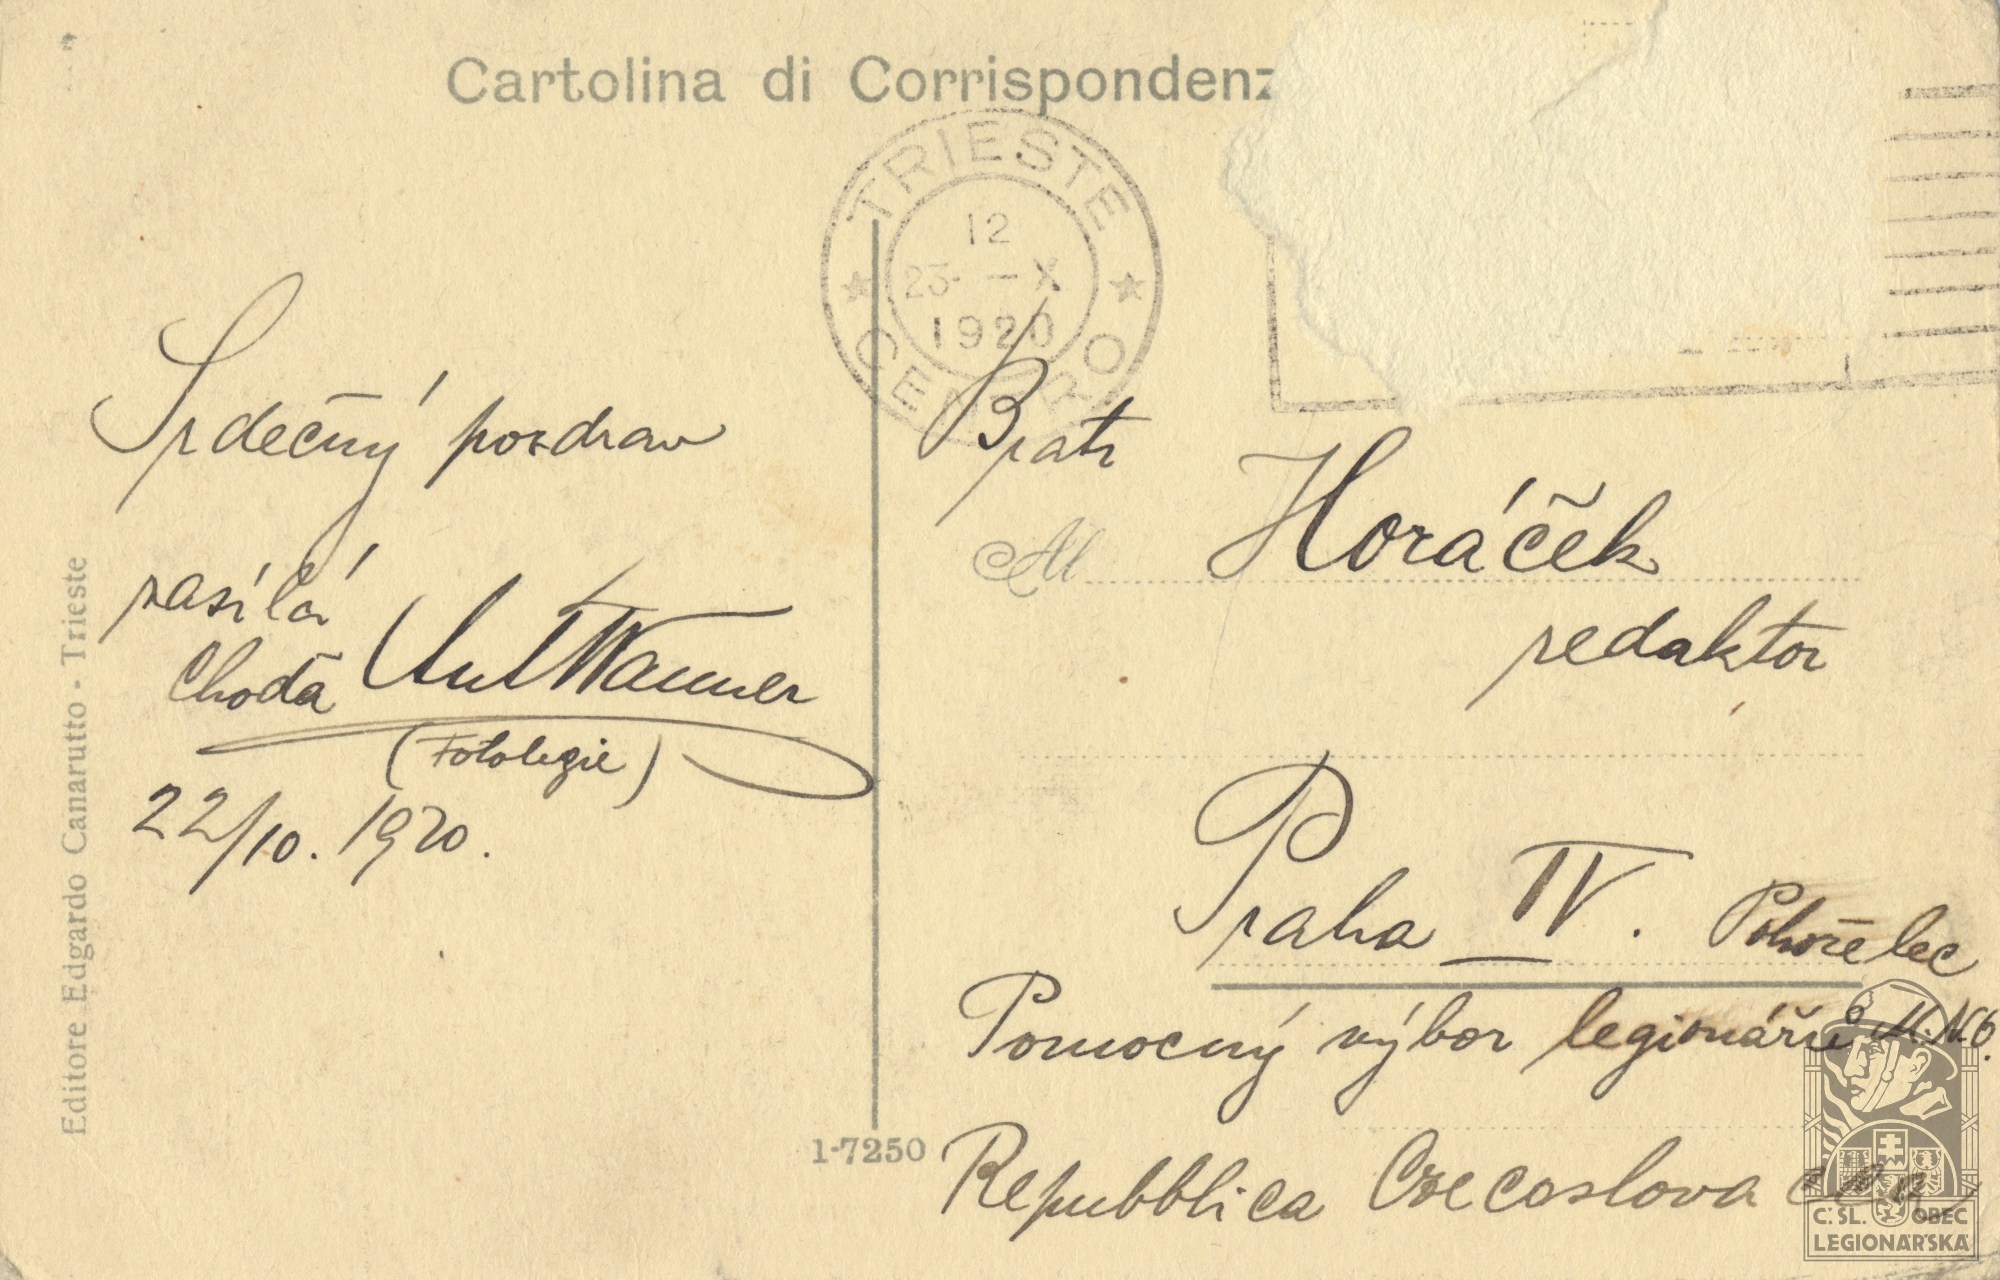 Cartolina di Corrispondenz
TRIESTE
12
23 - X
1920
CENTRO
Srdečný pozdrav
zasílá
Choda Ant Wanner
(Fotolegie)
22/10. 1920.
Bratr
Al Horáček
redaktor
Praha IV. Pohořelec
Pomocný výbor legionářů M.N.O.
Repubblica Czecoslova
Editore Edgardo Canarutto - Trieste
1-7250
Č. SL. OBEC
LEGIONÁŘSKÁ